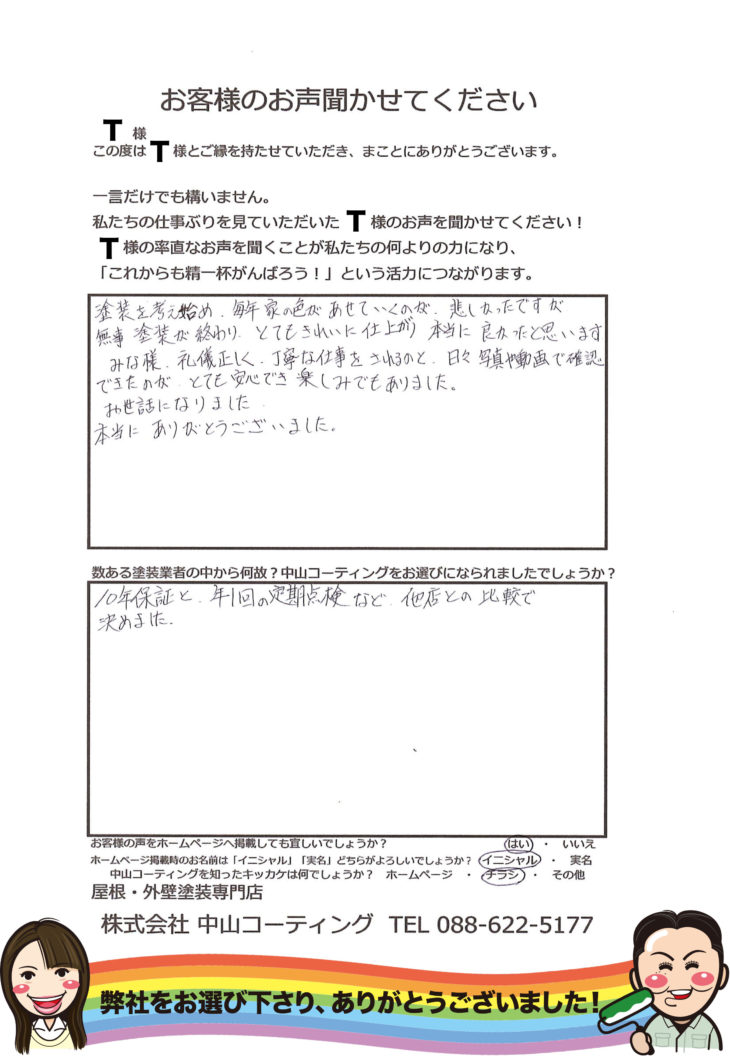 お客様のお声聞かせてください
T 様
この度は T 様とご縁を持たせていただき、まことにありがとうございます。
一言だけでも構いません。
私たちの仕事ぶりを見ていただいた T 様のお声を聞かせてください！
T 様の率直なお声を聞くことが私たちの何よりの力になり、
「これからも精一杯がんばろう！」という活力につながります。
塗装を考え始め、毎年家の色があせていくのが、悲しかったですが
無事 塗装が終わり、とてもきれいに仕上がり 本当に 良かったと思います
みな様、礼儀正しく、丁寧な仕事をされるのと、日々 写真や動画で確認
できたのが、とても安心でき 楽しみでもありました。
お世話になりました
本当に ありがとうございました。
数ある塗装業者の中から何故？中山コーティングをお選びになられましたでしょうか？
10年保証と、年1回の定期点検など、他店との比較で
決めました。
お客様の声をホームページへ掲載しても宜しいでしょうか？ はい ・ いいえ
ホームページ掲載時のお名前は「イニシャル」「実名」どちらがよろしいでしょうか？ イニシャル ・ 実名
中山コーティングを知ったキッカケは何でしょうか？ ホームページ ・ チラシ ・ その他
屋根・外壁塗装専門店
株式会社 中山コーティング TEL 088-622-5177
弊社をお選び下さり、ありがとうございました！